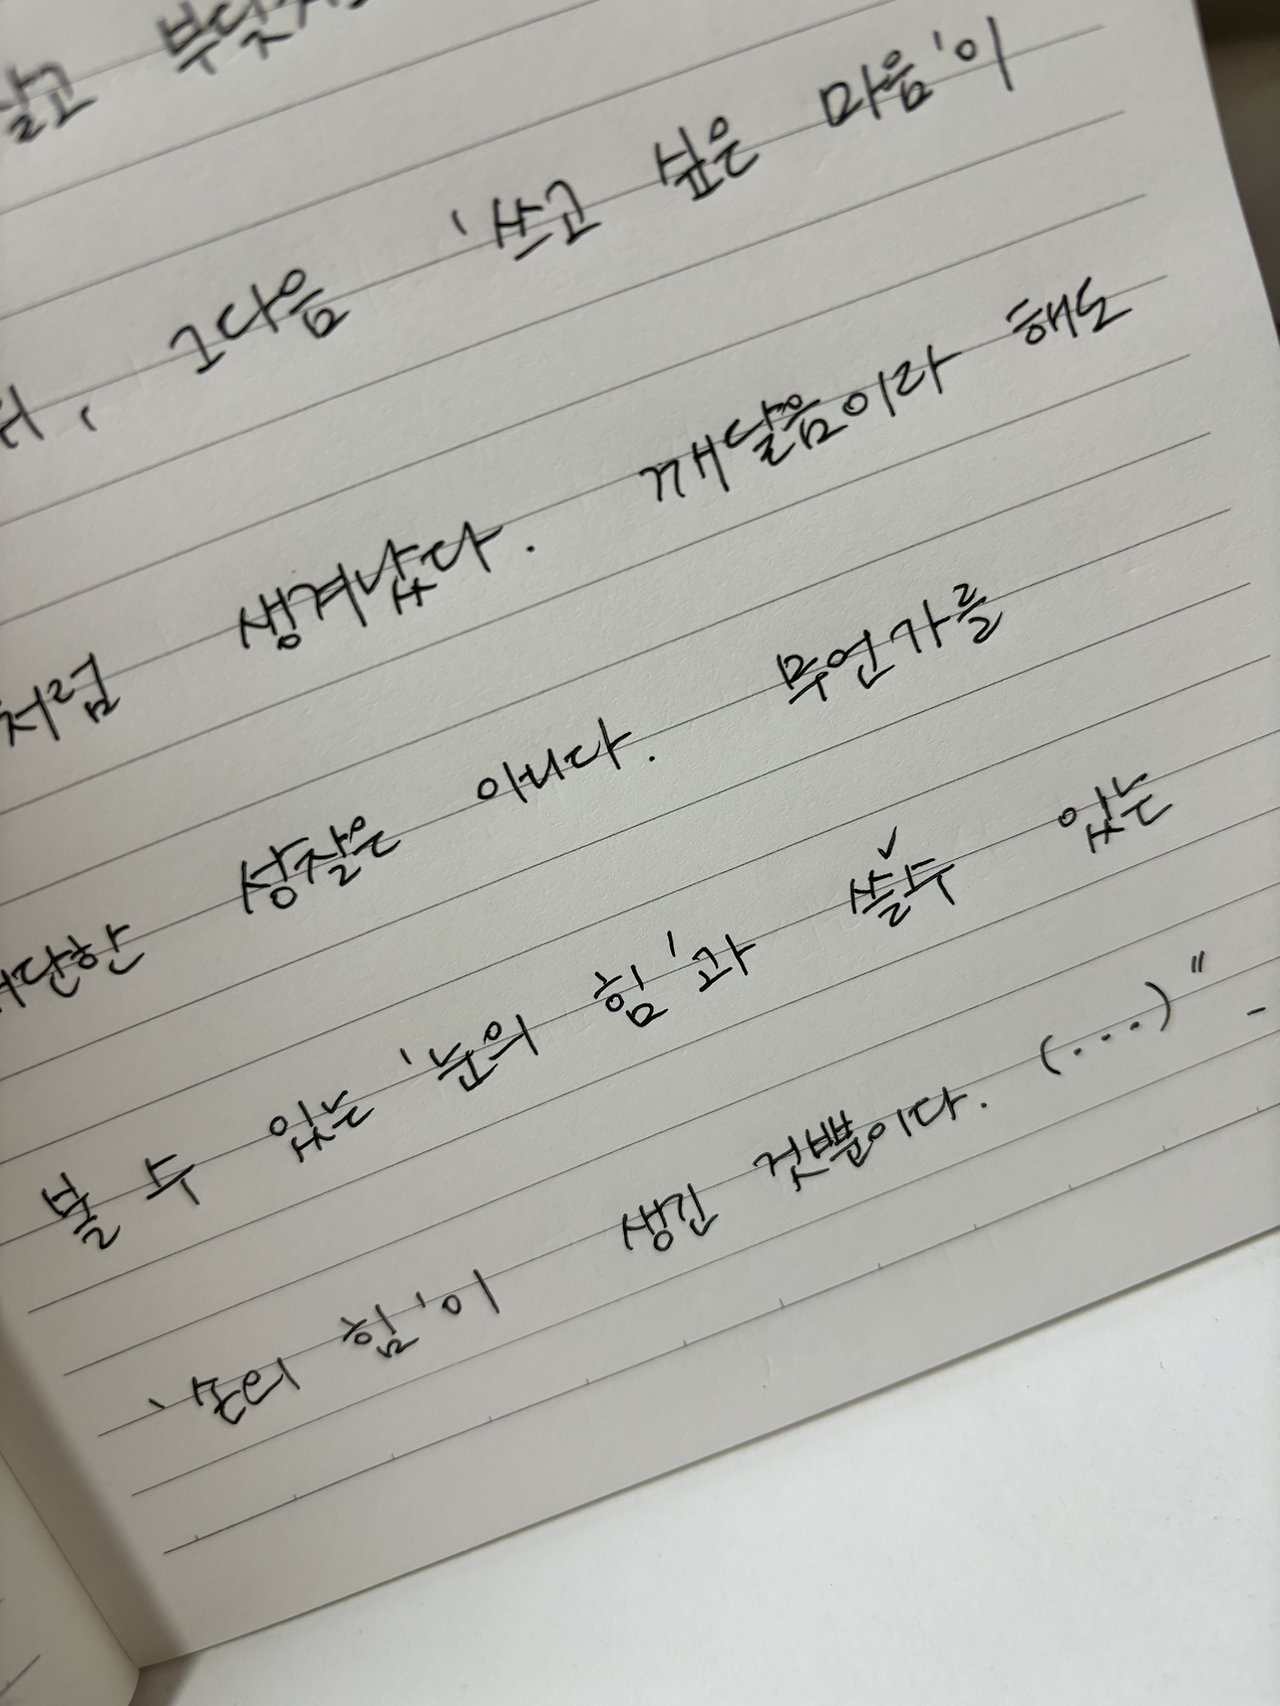 살고
그다음 '쓰고 싶은 마음'이
처럼 생겨났다. 깨달음이라 해도
성질은 아니다. 무언가를
볼 수 있는 '눈의 힘'과 쓸✓수 있는
'손의 힘'이 생긴 것뿐이다. (...)" -